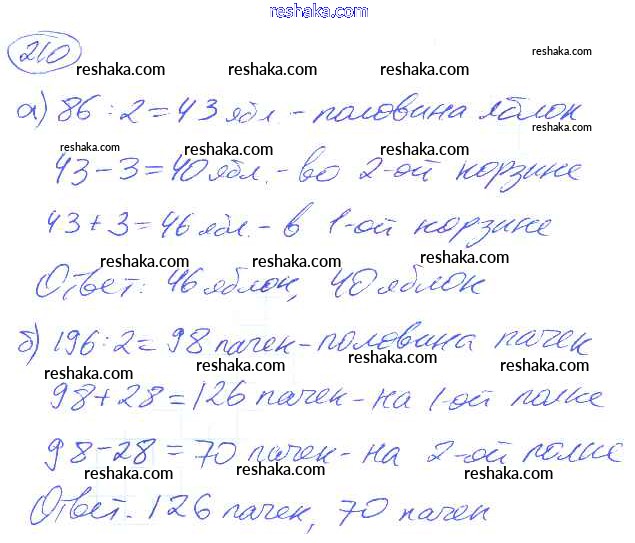 reshaka.com
210
reshaka.com reshaka.com reshaka.com reshaka.com
а) 86 : 2 = 43 ябл. - половина яблок
reshaka.com reshaka.com reshaka.com reshaka.com
43 - 3 = 40 ябл. - во 2-ой корзине
43 + 3 = 46 ябл. - в 1-ой корзине
reshaka.com reshaka.com reshaka.com
Ответ: 46 яблок, 40 яблок
reshaka.com reshaka.com reshaka.com
б) 196 : 2 = 98 пачек - половина пачек
reshaka.com reshaka.com reshaka.com
98 + 28 = 126 пачек - на 1-ой полке
reshaka.com reshaka.com reshaka.com
98 - 28 = 70 пачек - на 2-ой полке
reshaka.com reshaka.com reshaka.com
Ответ. 126 пачек, 70 пачек